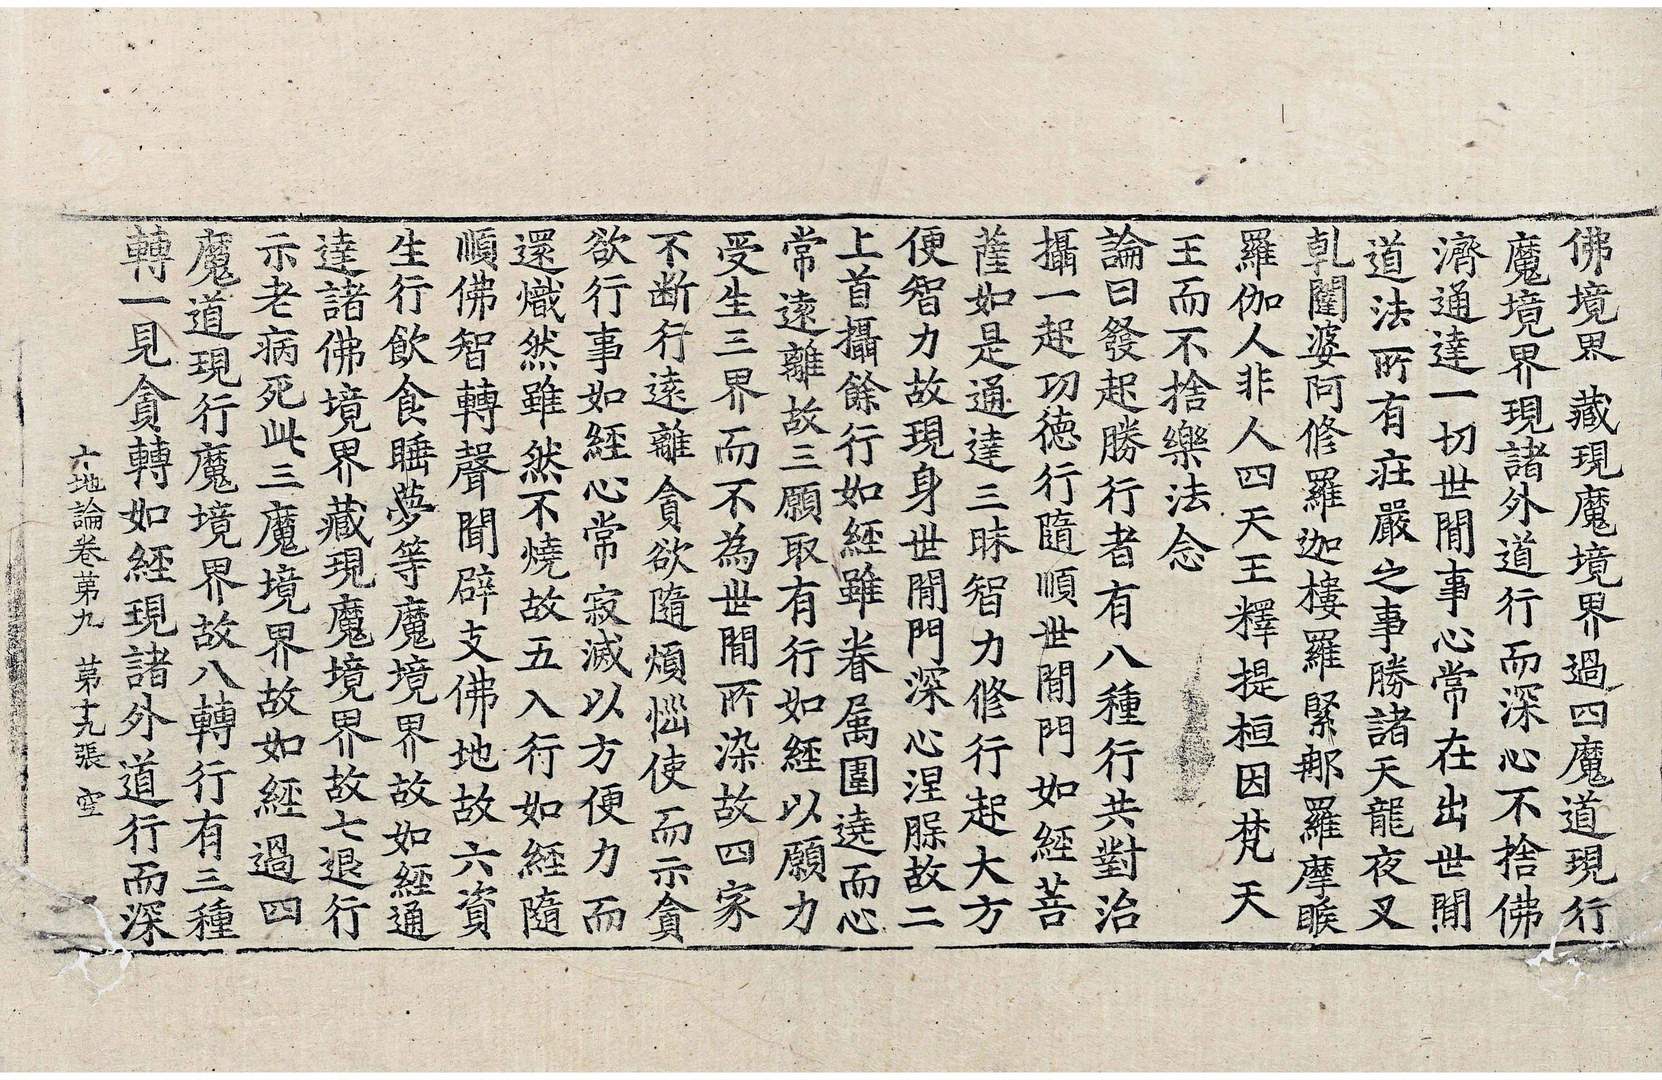 佛境界藏現魔境界過四魔道現行
魔境界現諸外道行而深心不捨佛
濟通達一切世閒事心常在出世閒
道法所有莊嚴之事勝諸天龍夜叉
乹闥婆阿修羅迦樓羅緊那羅摩睺
羅伽人非人四天王釋提桓因梵天
王而不捨樂法念
論曰發起勝行者有八種行共對治
攝一起功徳行隨順世閒門如經菩
薩如是通達三昧智力修行起大方
便智力故現身世閒門深心涅槃故二
上首攝餘行如經雖眷属圍遶而心
常遠離故三願取有行如經以願力
受生三界而不為世閒所染故四家
不断行遠離貪欲隨煩惱使而示貪
欲行事如經心常寂滅以方便力而
還熾然雖然不燒故五入行如經隨
順佛智轉聲聞辟支佛地故六資
生行飲食睡夢等魔境界故如經通
達諸佛境界藏現魔境界故七退行
示老病死此三魔境界故如經過四
魔道現行魔境界故八轉行有三種
轉一見貪轉如經現諸外道行而深
六地論卷苐九 苐十九張 空